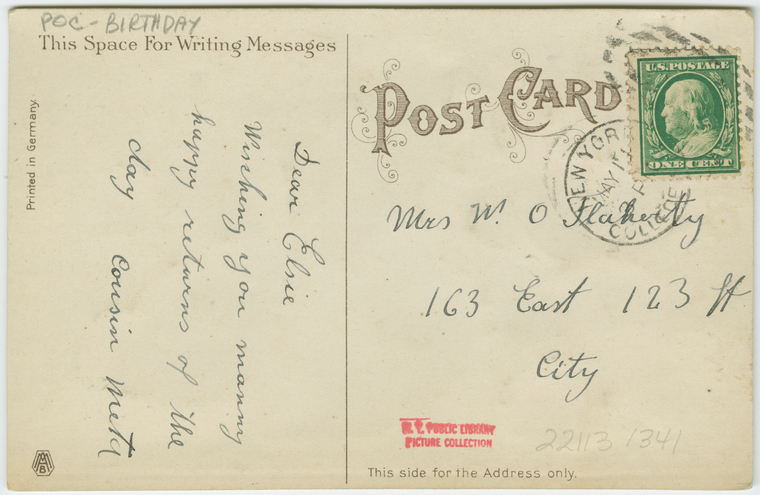 POC - BIRTHDAY
This Space For Writing Messages
Printed in Germany.
Dear Elsie
Wisching you manny
happy returns of the
day Cousin Meta
POST CARD
U.S. POSTAGE
ONE CENT
NEW YORK
MAY 15
COLLEGE
Mrs W. O Flaherty
163 East 123 St
City
N. Y. PUBLIC LIBRARY
PICTURE COLLECTION
22113 1341
This side for the Address only.